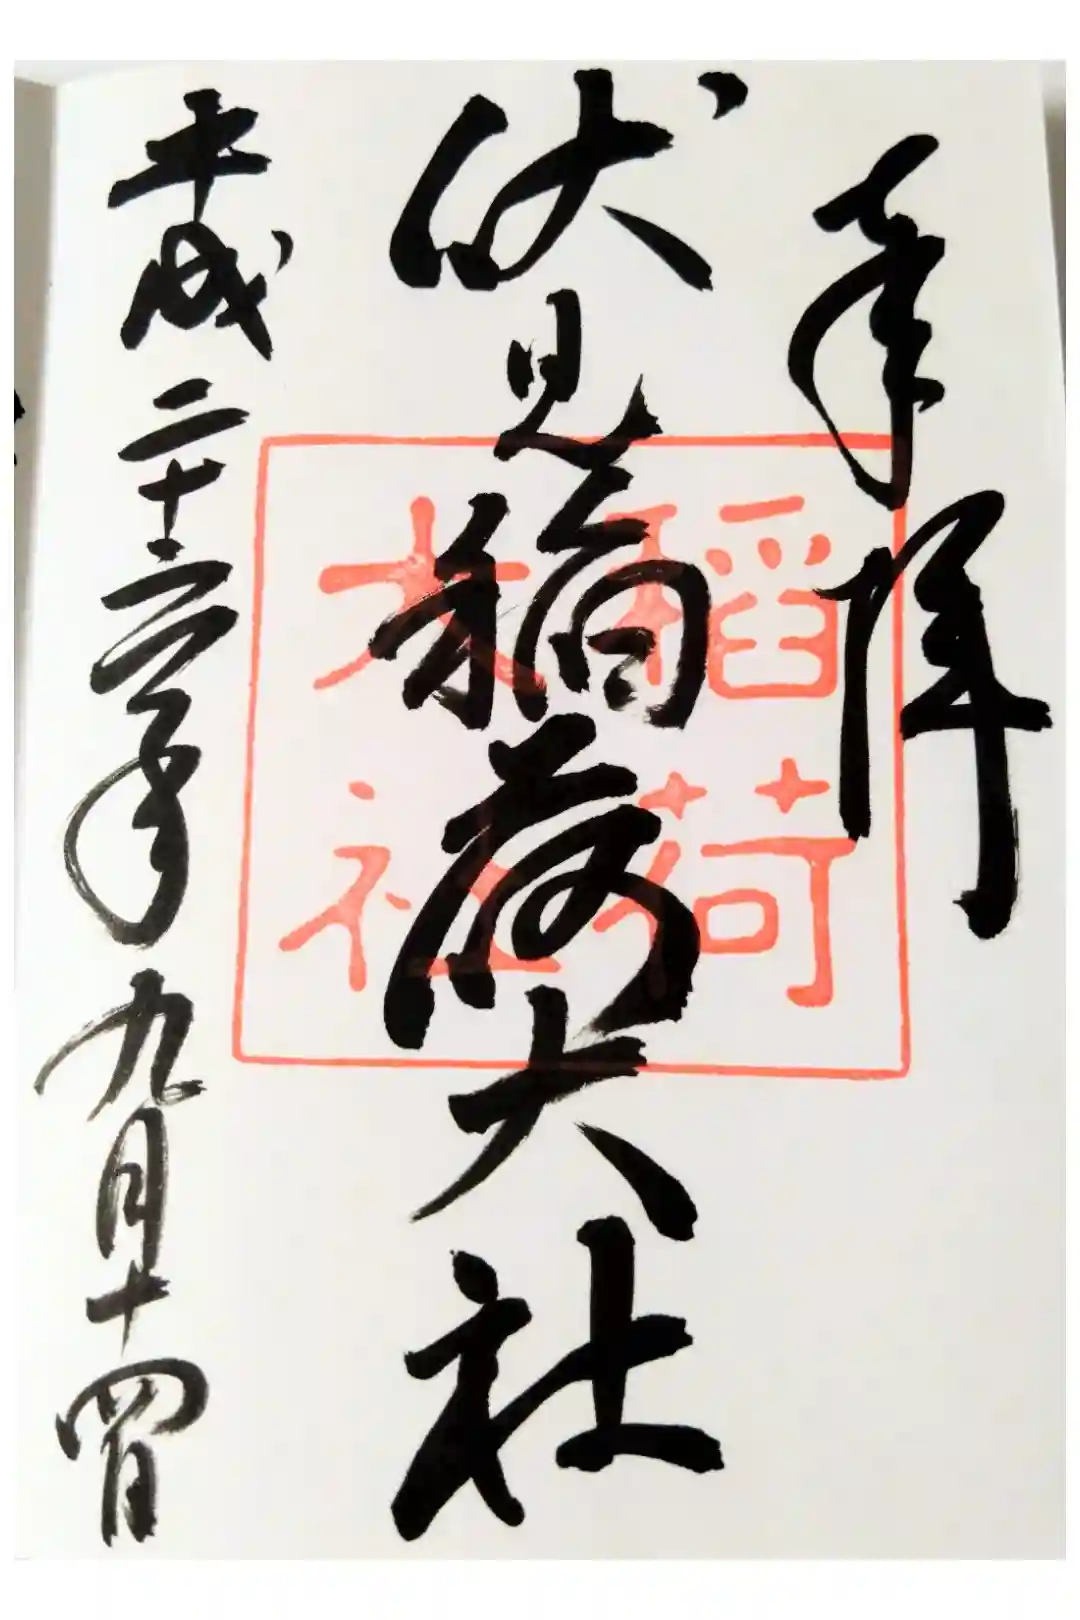 奉拝
伏見稲荷大社
平成二十六年九月十四日
稲荷
大社